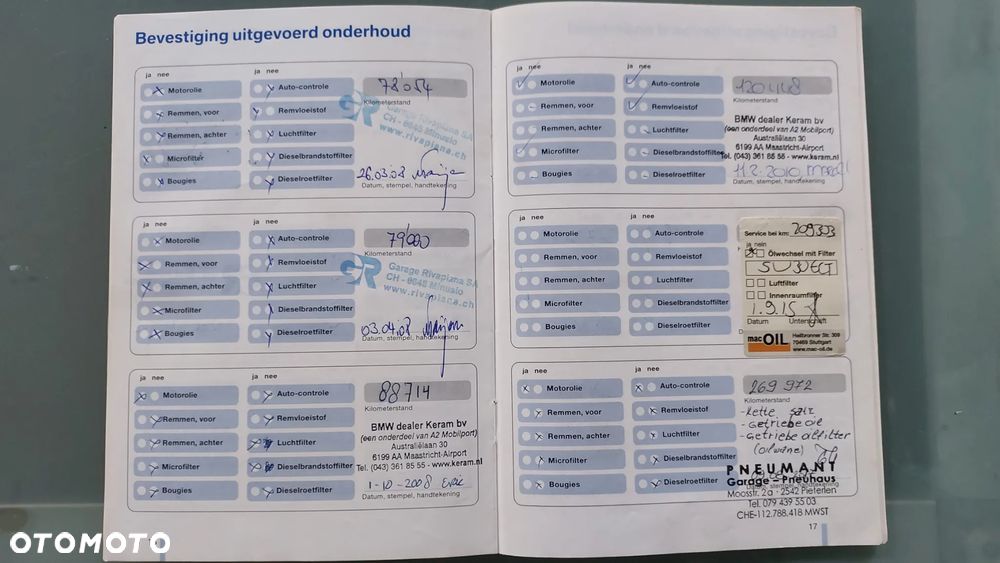 Bevestiging uitgevoerd onderhoud
ja nee
ja nee
Motorolie
Auto-controle
78'054
Remmen, voor
Remvloeistof
Kilometerstand
Remmen, achter
Luchtfilter
GR Garage Rivapiana SA
CH - 6648 Minusio
www.rivapiana.ch
Microfilter
Dieselbrandstoffilter
Bougies
Dieselroetfilter
26.03.08
Datum, stempel, handtekening
ja nee
ja nee
Motorolie
Auto-controle
79'000
Remmen, voor
Remvloeistof
Remmen, achter
Luchtfilter
GR Garage Rivapiana SA
CH - 6648 Minusio
www.rivapiana.ch
Microfilter
Dieselbrandstoffilter
Bougies
Dieselroetfilter
03.04.08
Datum, stempel, handtekening
ja nee
ja nee
Motorolie
Auto-controle
88714
Kilometerstand
Remmen, voor
Remvloeistof
BMW dealer Keram bv
(een onderdeel van A2 Mobilport)
Remmen, achter
Luchtfilter
Australiëlaan 30
6199 AA Maastricht-Airport
Microfilter
Dieselbrandstoffilter
Tel. (043) 361 85 55 - www.keram.nl
Bougies
Dieselroetfilter
1-10-2008
Datum, stempel, handtekening
ja nee
ja nee
Motorolie
Auto-controle
120448
Remmen, voor
Remvloeistof
Kilometerstand
Remmen, achter
Luchtfilter
BMW dealer Keram bv
(een onderdeel van A2 Mobilport)
Australiëlaan 30
6199 AA Maastricht-Airport
Microfilter
Dieselbrandstoffilter
Tel. (043) 361 85 55 - www.keram.nl
Bougies
Dieselroetfilter
11.2.2010
Datum, stempel, handtekening
ja nee
ja nee
Motorolie
Auto-controle
Remmen, voor
Remvloeistof
Remmen, achter
Luchtfilter
Microfilter
Dieselbrandstoffilter
Bougies
Dieselroetfilter
Service bei km: 209303
ja nein
Ölwechsel mit Filter
5W30ECT
Luftfilter
Innenraumfilter
1.9.15
Datum Unterschrift
mac OIL
Heilbronner Str. 309
70469 Stuttgart
www.mac-oil.de
ja nee
ja nee
Motorolie
Auto-controle
269 972
Kilometerstand
Remmen, voor
Remvloeistof
- Kette
Remmen, achter
Luchtfilter
- Getriebe oil
- Getriebe oilfilter
Microfilter
Dieselbrandstoffilter
Bougies
Dieselroetfilter
stempel, handtekening
PNEUMANT
Garage – Pneuhaus
Moosstr. 2a · 2542 Pieterlen
Tel. 079 439 55 03
CHE-112.788.418 MWST
17
OTOMOTO